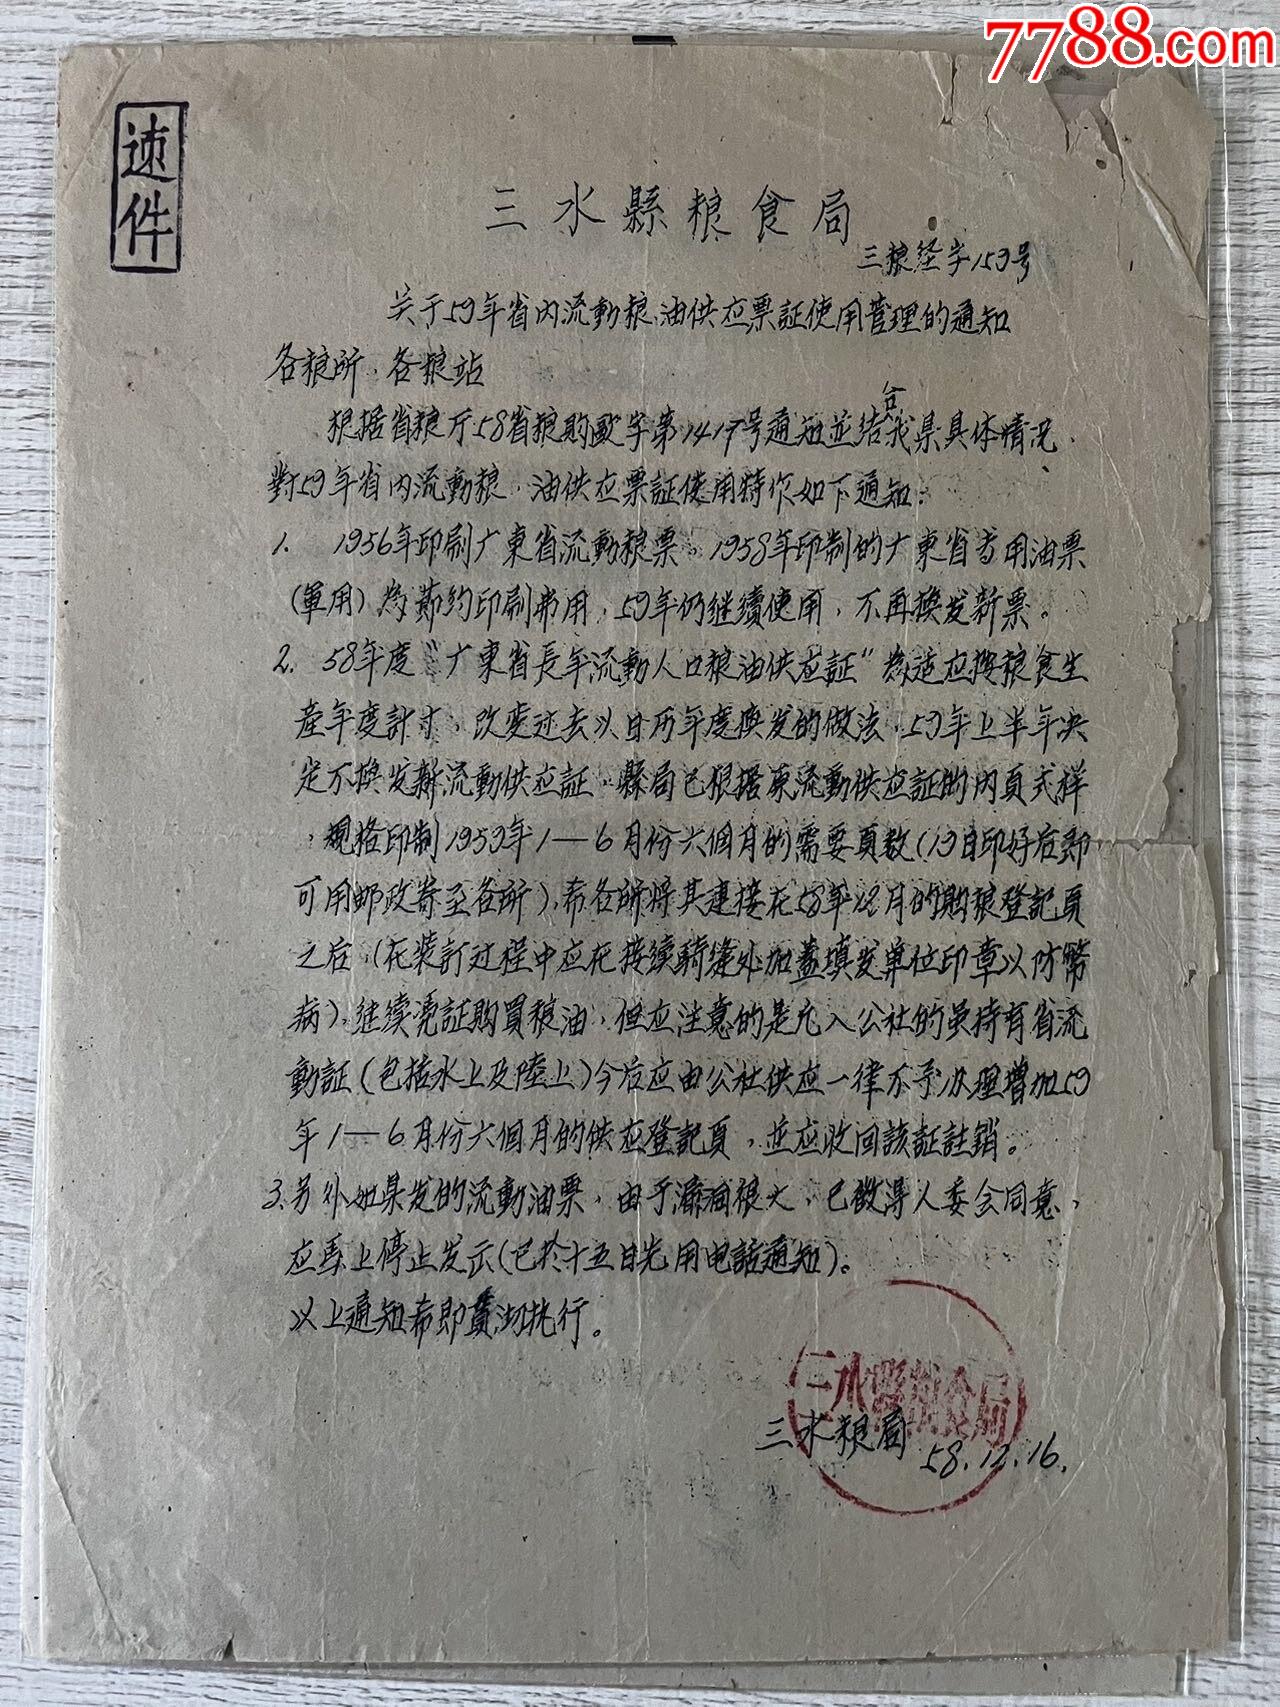 7788.com
速件
三水縣粮食局
三粮经字159号
关于59年省内流動粮、油供应票証使用管理的通知
各粮所、各粮站
根据省粮厅58省粮购欧字第1417号通知並结合我県具体情况、
對59年省内流動粮、油供应票証使用特作如下通知：
1. 1956年印刷广東省流動粮票。1958年印制的广東省专用油票
(軍用)為節約印刷弗用，59年仍继續使用，不再换发新票。
2. 58年度“广東省長年流動人口粮油供应証”為适应按粮食生
産年度計寸，改变过去以日历年度换发的做法，59年上半年决
定不换发新流動供应証。縣局已根据原流動供应証的内頁式样
，規格印制1959年1—6月份六個月的需要頁数(19日印好后即
可用邮政寄至各所)，希各所将其連接在58年12月的购粮登記頁
之后，(在装訂过程中应在接续騎缝处加蓋填发單位印章以防幣
病)，继续凭証购買粮油，但应注意的是凡入公社的虽持有省流
動証(包括水上及陸上)今后应由公社供应一律不予办理增加59
年1—6月份六個月的供应登記頁，並应收回該証註銷。
3.另外如県发的流動油票，由于漏洞很大，已徵得人委会同意，
应馬上停止发示(已於十五日先用电話通知)。
以上通知希即貫沏执行。
三水縣粮食局
三水粮局
58.12.16.